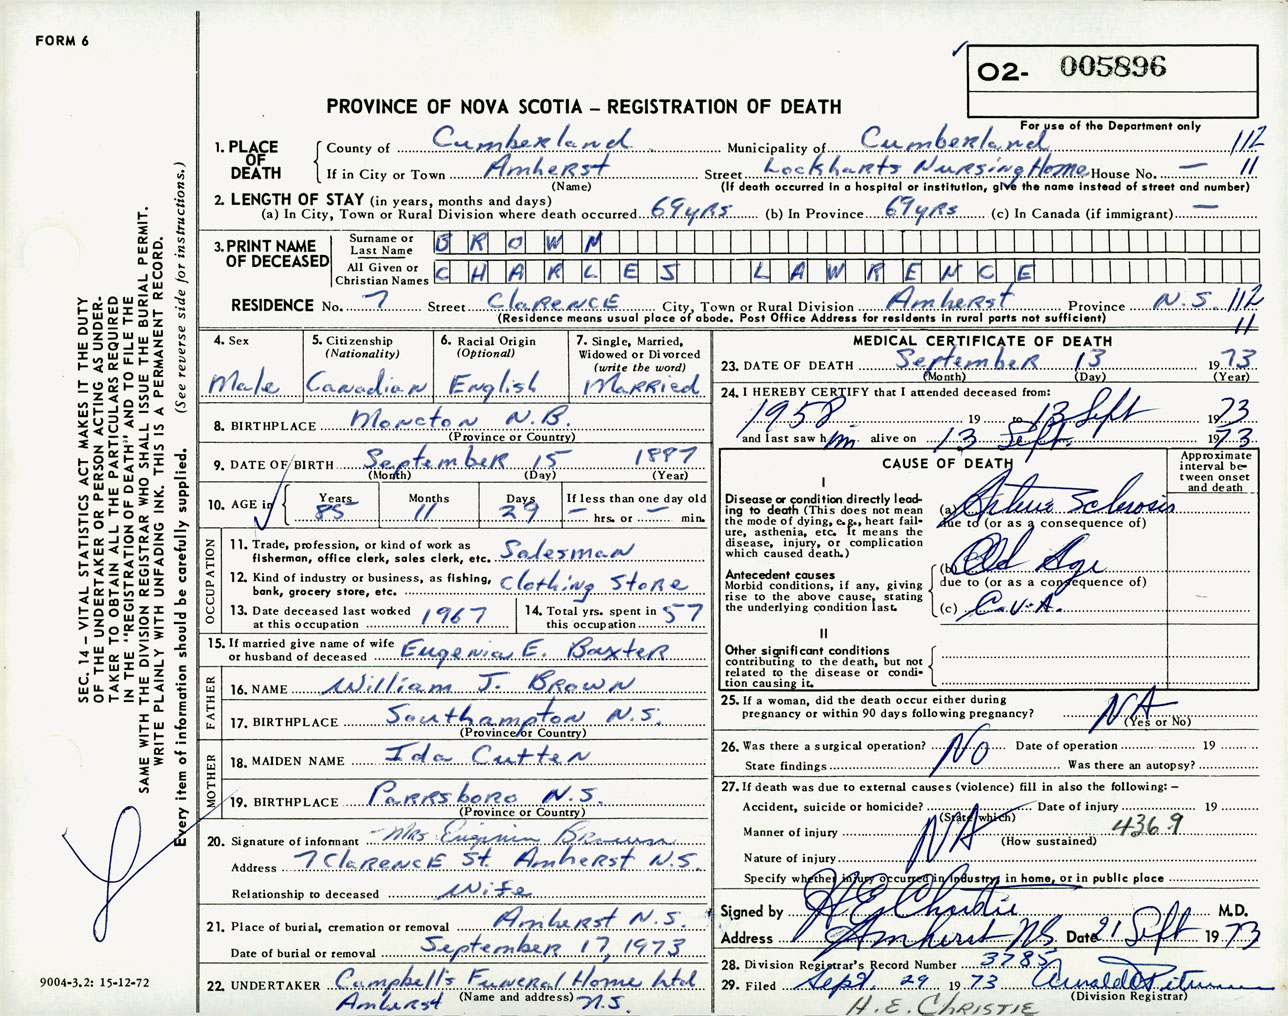 FORM 6
O2- 005896
PROVINCE OF NOVA SCOTIA – REGISTRATION OF DEATH
For use of the Department only
1. PLACE OF DEATH
County of Cumberland Municipality of Cumberland 112
If in City or Town Amherst Street Lockharts Nursing Home House No. — 11
(Name) (If death occurred in a hospital or institution, give the name instead of street and number)
2. LENGTH OF STAY (in years, months and days)
(a) In City, Town or Rural Division where death occurred 69 yrs (b) In Province 69 yrs (c) In Canada (if immigrant) —
3. PRINT NAME OF DECEASED
Surname or Last Name BROWN
All Given or Christian Names CHARLES LAWRENCE
RESIDENCE No. 7 Street Clarence City, Town or Rural Division Amherst Province N.S. 112
(Residence means usual place of abode. Post Office Address for residents in rural parts not sufficient) 11
4. Sex
Male
5. Citizenship
(Nationality)
Canadian
6. Racial Origin
(Optional)
English
7. Single, Married,
Widowed or Divorced
(write the word)
Married
8. BIRTHPLACE Moncton N.B.
(Province or Country)
9. DATE OF BIRTH September 15 1887
(Month) (Day) (Year)
10. AGE in
Years 85
Months 11
Days 29
If less than one day old
— hrs. or — min.
OCCUPATION
11. Trade, profession, or kind of work as
fisherman, office clerk, sales clerk, etc. Salesman
12. Kind of industry or business, as fishing,
bank, grocery store, etc. Clothing Store
13. Date deceased last worked
at this occupation 1967
14. Total yrs. spent in
this occupation 57
15. If married give name of wife
or husband of deceased Eugenia E. Baxter
FATHER
16. NAME William J. Brown
17. BIRTHPLACE Southampton N.S.
(Province or Country)
MOTHER
18. MAIDEN NAME Ida Cutten
19. BIRTHPLACE Parrsboro N.S.
(Province or Country)
20. Signature of informant Mrs Eugenia Brown
Address 7 Clarence St. Amherst N.S.
Relationship to deceased Wife
21. Place of burial, cremation or removal Amherst N.S.
Date of burial or removal September 17, 1973
22. UNDERTAKER Campbell's Funeral Home Ltd
(Name and address)
Amherst N.S.
MEDICAL CERTIFICATE OF DEATH
23. DATE OF DEATH September 13 1973
(Month) (Day) (Year)
24. I HEREBY CERTIFY that I attended deceased from:
1958 19 to 13 Sept 1973
and last saw him alive on 13 Sept. 1973
CAUSE OF DEATH
Approximate interval between onset and death
I
Disease or condition directly lead-
ing to death (This does not mean
the mode of dying, e.g., heart fail-
ure, asthenia, etc. It means the
disease, injury, or complication
which caused death.)
(a) Arterio Sclerosis
due to (or as a consequence of)
Antecedent causes
Morbid conditions, if any, giving
rise to the above cause, stating
the underlying condition last.
(b) Old Age
due to (or as a consequence of)
(c) C.V.A.
II
Other significant conditions
contributing to the death, but not
related to the disease or condi-
tion causing it.
25. If a woman, did the death occur either during
pregnancy or within 90 days following pregnancy? NA
(Yes or No)
26. Was there a surgical operation? NO Date of operation 19
State findings Was there an autopsy?
27. If death was due to external causes (violence) fill in also the following: –
Accident, suicide or homicide? Date of injury 19
(State which)
Manner of injury NA 436.9
(How sustained)
Nature of injury
Specify whether injury occurred in Industry, in home, or in public place
Signed by H E Christie M.D.
Address Amherst NS. Date 21 Sept 1973
28. Division Registrar's Record Number 3785
29. Filed Sept. 29 1973
(Division Registrar)
H. E. CHRISTIE
SEC. 14 – VITAL STATISTICS ACT MAKES IT THE DUTY
OF THE UNDERTAKER OR PERSON ACTING AS UNDER-
TAKER TO OBTAIN ALL THE PARTICULARS REQUIRED
IN THE "REGISTRATION OF DEATH" AND TO FILE THE
SAME WITH THE DIVISION REGISTRAR WHO SHALL ISSUE THE BURIAL PERMIT.
WRITE PLAINLY WITH UNFADING INK. THIS IS A PERMANENT RECORD.
Every item of information should be carefully supplied. (See reverse side for instructions.)
9004-3.2: 15-12-72